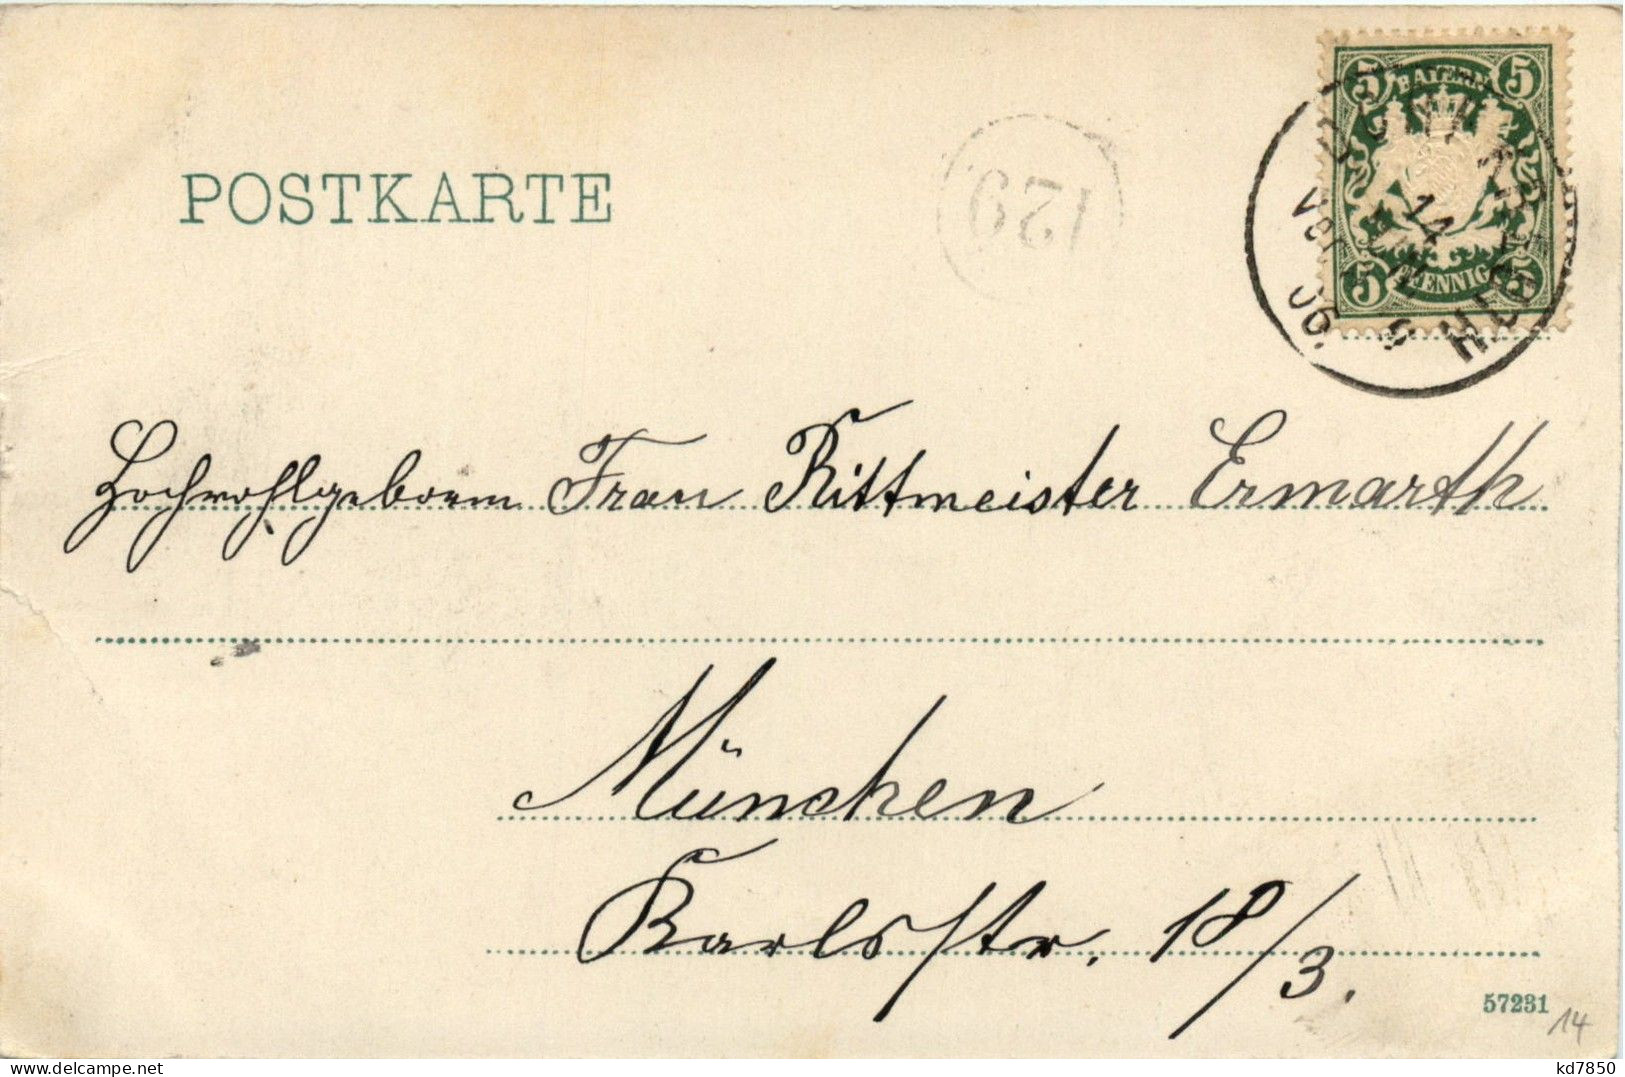 POSTKARTE
129
5 BAYERN 5
5 PFENNIG 5
14
VORM.
06.
Hochwohlgeboren Frau Rittmeister Ermarth
München
Karlsstr. 18/3.
57231
14
kd7850